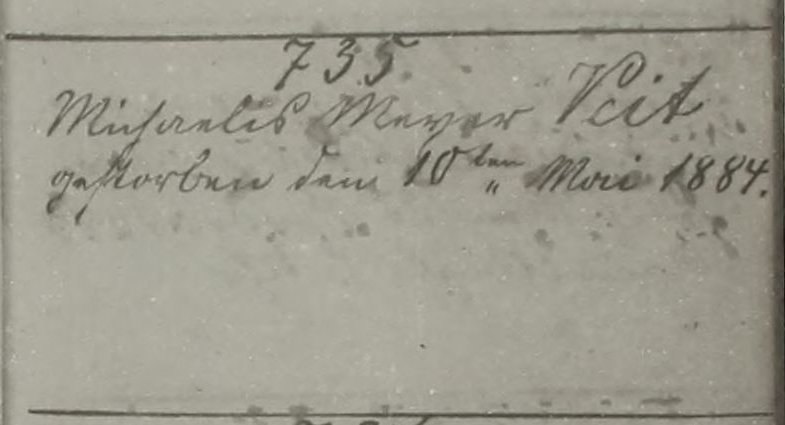 735
Michaelis Meyer Veit
gestorben den 10ten Mai 1884.